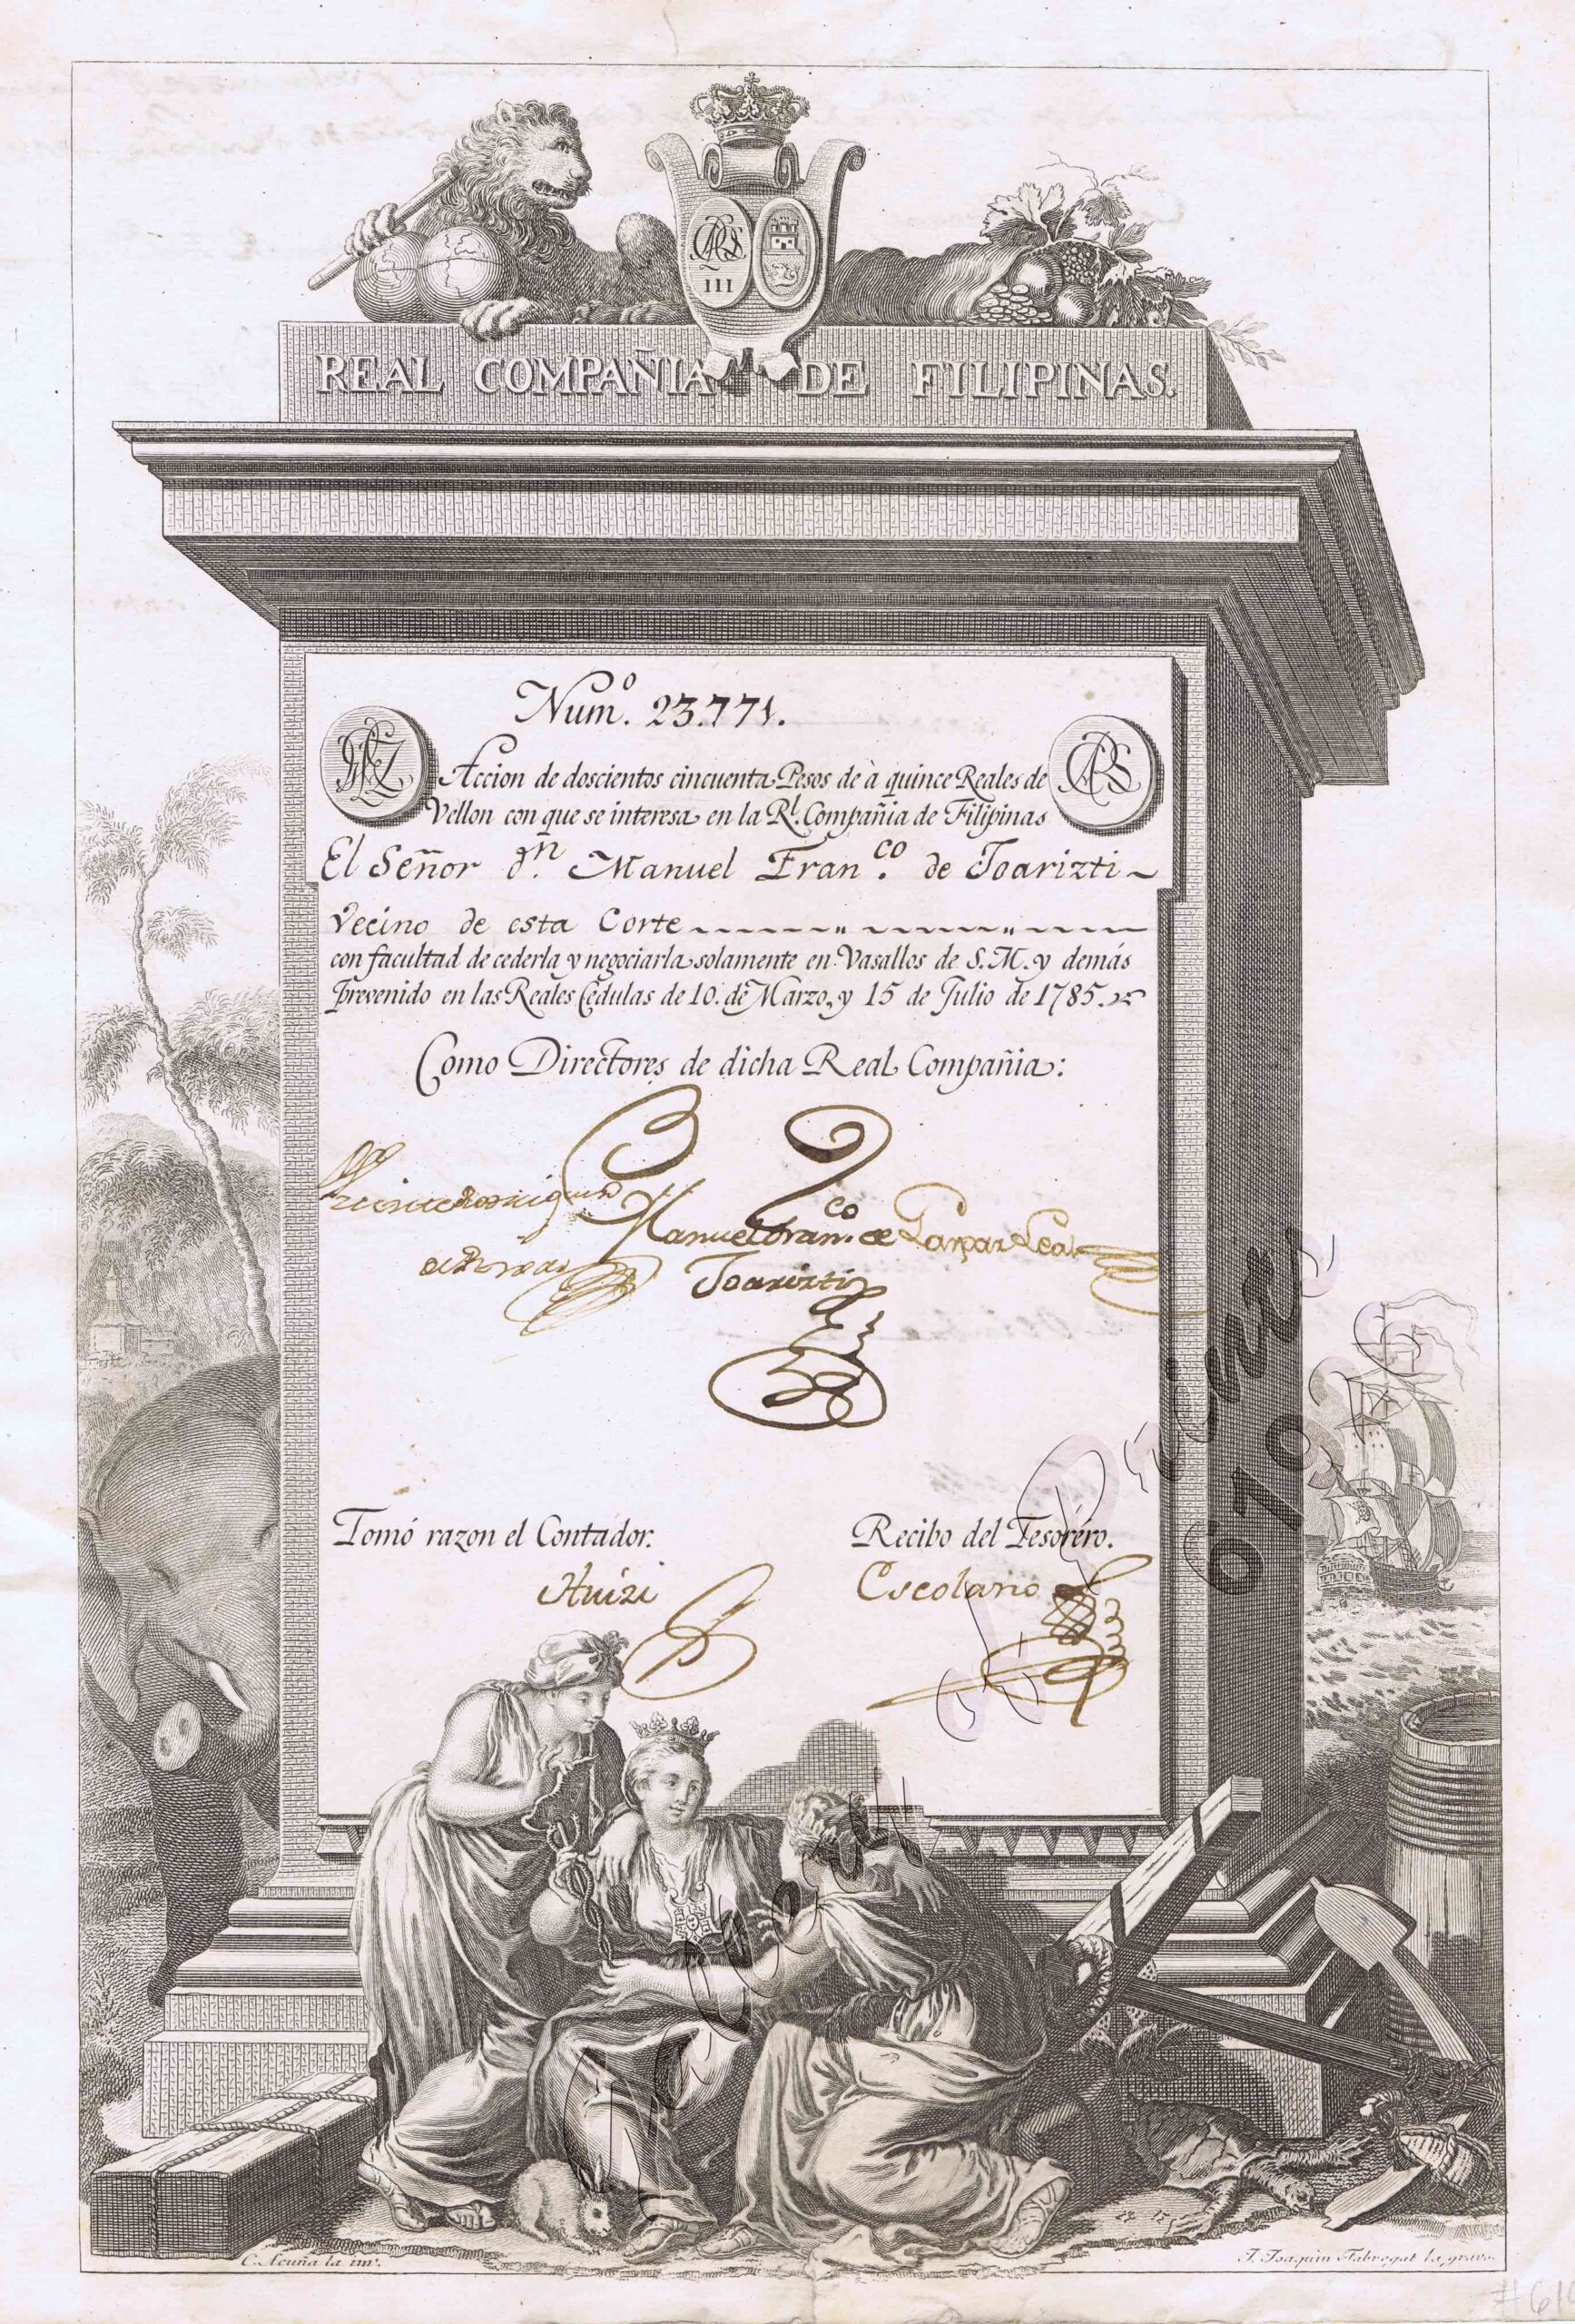 III
REAL COMPAÑIA DE FILIPINAS.
Num.º 23.771.
Accion de doscientos cincuenta Pesos de à quince Reales de
Vellon con que se interesa en la R.l Compañia de Filipinas
El Señor d.n Manuel Fran.co de Joarizti
Vecino de esta Corte
con facultad de cederla y negociarla solamente en Vasallos de S. M. y demás
prevenido en las Reales Cedulas de 10. de Marzo, y 15 de Julio de 1785.
Como Directores de dicha Real Compañia:
Vicente Rodriguez
de Rivas
Manuel Fran.co de
Joarizti
Gaspar Leal
Tomó razon el Contador.
Recibo del Tesoréro.
Huizi
Escolano
C. Acuña la inv.
F. Joaquin Fabregat la gravo.